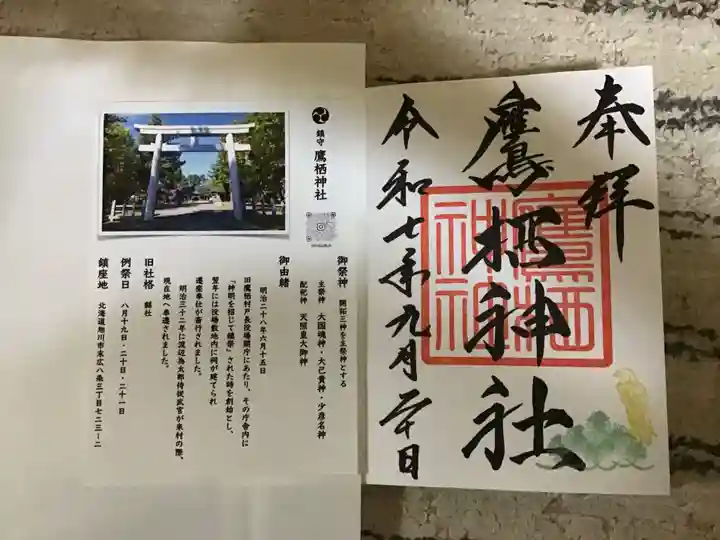 奉拝
鷹栖神社
鷹栖
神社
令和七年九月二十日
鎮守 鷹栖神社
御祭神 開拓三神を主祭神とする
主祭神 大国魂神・大己貴神・少彦名神
配祀神 天照皇大御神
御由緒
明治二十八年六月十五日
旧鷹栖村戸長役場開庁にあたり、その庁舎内に
「神明を招じて鎮祭」された時を創始とし、
翌年には役場敷地内に祠が建てられ
遷座奉仕が斎行されました。
明治三十二年に渡辺為太郎侍従武官が来村の際、
現在地へ奉遷されました。
旧社格 郷社
例祭日 八月十九日・二十日・二十一日
鎮座地 北海道旭川市末広八条三丁目七二三−二